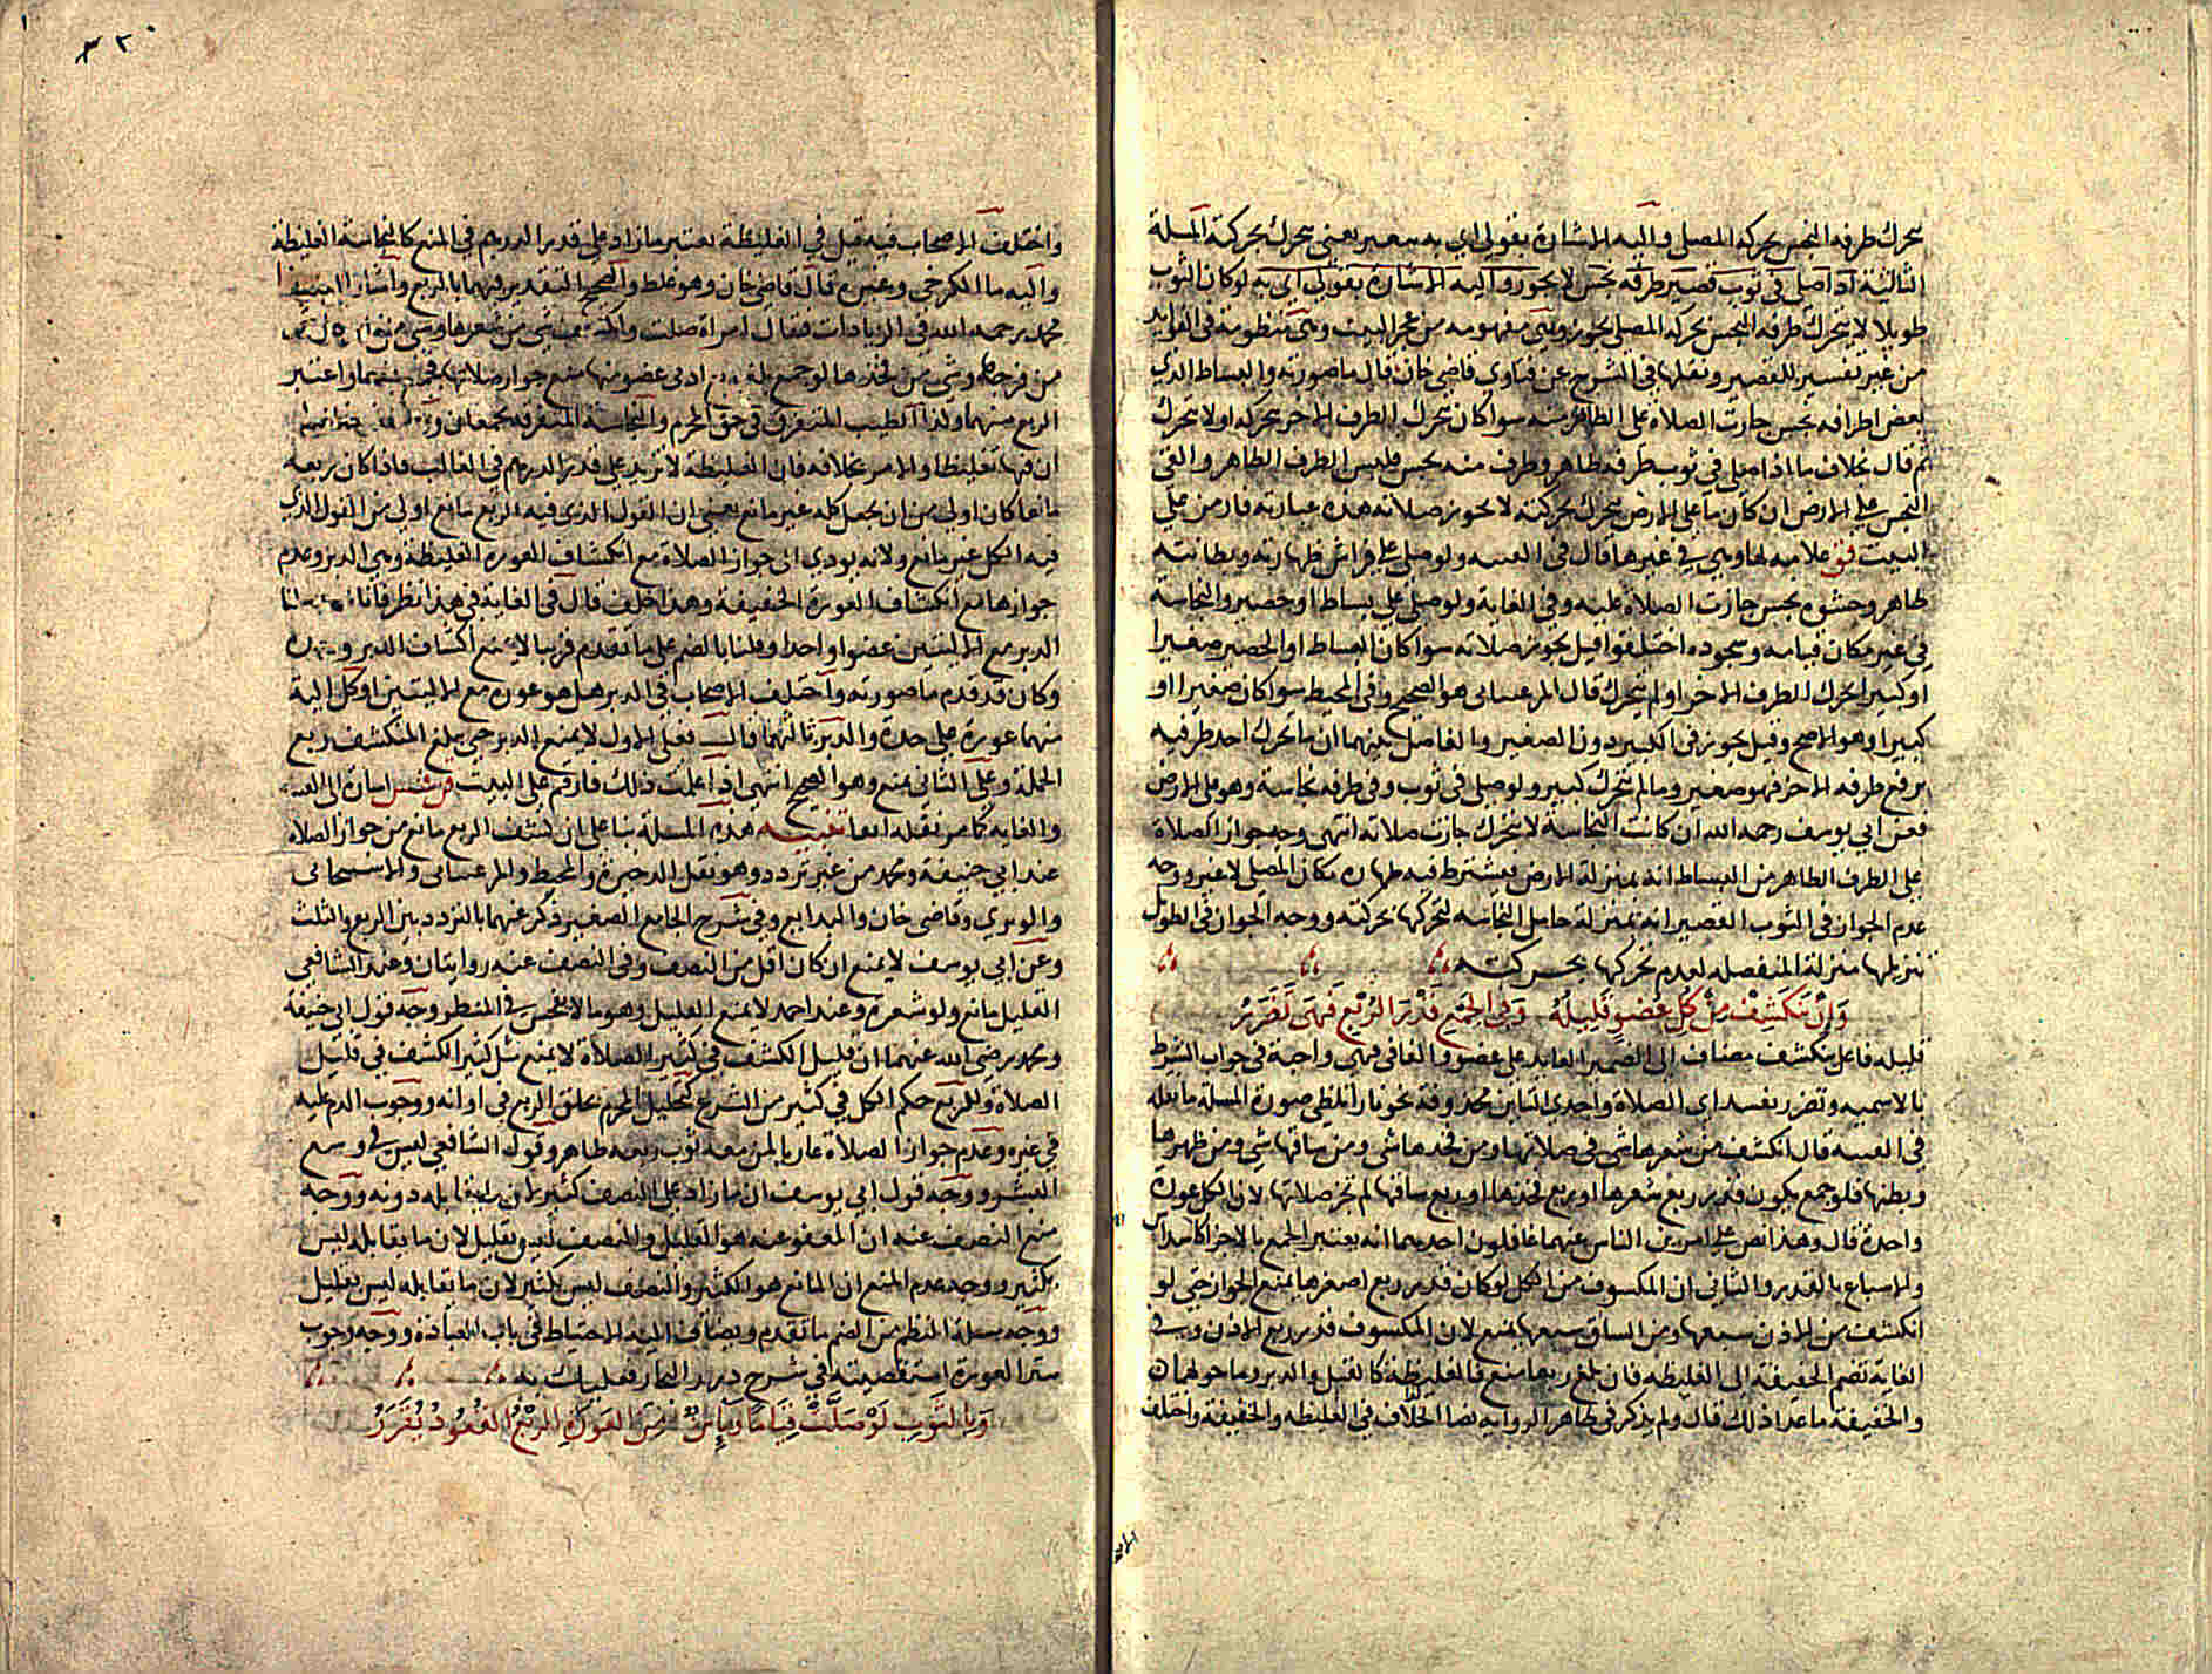 يتحرك طرفه النجس بحركة المصلي واليه الاشارة بقولي اي به يعني يتحرك بحركته المسلة
الثالثة اذا صلى في ثوب قصير طرفه نجس لا يجوز واليه الاشارة بقولي اي به لو كان الثوب
طويلا لا يتحرك طرفه النجس بحركة المصلي يجوز وهي مفهومه من عجز البيت وهي منظومة في الفوايد
من غير تفسير للقصير ونقلها في الشرح عن فتاوى قاضي خان قال ما صورته والبساط الذي
بعض اطرافه نجس جازت الصلاة على الطاهر منه سوا كان يتحرك الطرف الاخر بحركته او لا يتحرك
ثم قال بخلاف ما اذا صلى في ثوب طرفه طاهر وطرف منه نجس فلبس الطرف الطاهر والقى
النجس على الارض ان كان ما على الارض يتحرك بحركته لا تجوز صلاته هذه عبارته فاد من على
البيت قق علامه لها وهي في غيرها قال في القنيه ولو صلى على فراش ظهارته وبطانته
طاهر وحشوه نجس جازت الصلاة عليه وفي الغاية ولو صلى على بساط او حصير والنجاسة
في غير مكان قيامه وسجوده اختلفوا قيل تجوز صلاته سوا كان البساط او الحصير صغيرا
او كبيرا تحرك الطرف الاخر او لم يتحرك قال المرغيناني هو الصحيح وفي المحيط سوا كان صغيرا او
كبيرا وهو الاصح وقيل يجوز في الكبير دون الصغير والفاصل بينهما ان ما تحرك احد طرفيه
برفع طرفه الاخر فهو صغير وما لم يتحرك كبير ولو صلى في ثوب وفي طرفه نجاسة وهو على الارض
فعن ابي يوسف رحمه الله ان كانت النجاسة لا تتحرك جازت صلاته انتهى وجه جواز الصلاة
على الطرف الطاهر من البساط انه بمنزلة الارض فيشترط فيه طهارة مكان المصلي لا غير ووجه
عدم الجواز في الثوب القصير انه بمنزلة حامل النجاسه لتحركها بحركته ووجه الجواز في الطويل
تنزيلها منزلة المنفصلة لعدم تحركها بحركته
وَاِنْ تَنْكَشِفْ مِنْ كُلِّ عُضْوٍ قَلِيلُهُ وَفِي الجَمْعِ قَدْرَ الرُّبْعِ فَهْيَ تَضَرَّرُ
قليله فاعل تنكشف مضاف الى الضمير العايد على عضو والفا في فهي واجبة في جواب الشرط
بالاسميه وتضرر تفسد اي الصلاة واحدي التاين محذوفة نحو نارا تلظى صورة المسلة ما نقله
في القنيه قال انكشف من شعرها شي في صلاتها ومن فخذها شي ومن ساقها شي ومن ظهرها
وبطنها فلو جمع يكون قدر ربع شعرها او ربع فخذها او ربع ساقها لم تجز صلاتها لان الكل عورة
واحدة قال وهذا نص على امرين الناس عنهما غافلون احدهما انه يعتبر الجمع بالاجزا كاسداس
والاسباع بالقدر والثاني ان المكشوف من الكل لو كان قدر ربع اصغرها يمنع الجواز حتى لو
انكشف من الاذن سبعها ومن الساق سبعها يمنع لان المكشوف قدر ربع الاذن وفي
الغاية تضم الخفيفة الى الغليظه فان بلغ ربعها منع فالغليظة كالقبل والدبر وما حولهما
والخفيفة ما عدا ذلك قال ولم يذكر في ظاهر الروايه نصا الخلاف في الغليظه والخفيفة واختلف
واختلف الاصحاب فيه قيل في الغليظة يعتبر ما زاد على قدر الدرهم في المنع كالنجاسة الغليظة
واليه مال الكرخي وغيره قال قاضي خان وهو غلط والصحيح التقدير فيهما بالربع واشار
محمد رحمه الله في الزيادات فقال امراة صلت وانكشف شي من شعرها وشي من
من فرجها وشي من فخذها لو جمع بلغ ربع ادنى عضو منها منع جواز صلاتها فجمع بينهما واعتبر
الربع منهما ولذا الطيب المتفرق في حق المحرم والنجاسة المتفرقة تجمعان
ان فيها تغليظا والامر بخلافه فان الغليظة لا تزيد على قدر الدرهم في الغالب فاذا كان ربعه
مانعا كان اولى من ان يجعل كله غير مانع يعني ان القول الذي فيه الربع مانع اولى من القول الذي
فيه الكل غير مانع ولانه يودي الى جواز الصلاة مع انكشاف العورة الغليظة وهي الدبر وعدم
جوازها مع انكشاف العورة الخفيفة وهذا خلف قال في الغاية في هذا نظر فانا
الدبر مع الاليتين عضوا واحدا وقلنا بالضم على ما تقدم قريبا لا يمنع انكشاف الدبر
وكان قد قدم ما صورته واختلف الاصحاب في الدبر هل هو عورة مع الاليتين او كل الية
منهما عورة على حدة والدبر ثالثهما قال فعلى الاول لا يمنع الدبر حتى يبلغ المنكشف ربع
الجملة وعلى الثاني يمنع وهو الصحيح انتهى اذا علمت ذلك فارقم على البيت اشارة الى القنية
والغايه كما مر نقله انفا تنبيه هذه المسلة بنا على ان كشف الربع مانع من جواز الصلاة
عند ابي حنيفة ومحمد من غير تردد وهو نقل الذخيرة والمحيط والمرغيناني والاسبيجابي
والوبري وقاضي خان والبدايع وفي شرح الجامع الصغير ذكر عنهما بالتردد بين الربع والثلث
وعن ابي يوسف لا يمنع ان كان اقل من النصف وفي النصف عنه روايتان وعند الشافعي
القليل مانع ولو شعرة وعند احمد لا يمنع القليل وهو ما لا يفحس في النظر وجه قول ابي حنيفة
ومحمد رضي الله عنهما ان قليل الكشف في كثير الصلاة لا يمنع مثل كثير الكشف في قليل
الصلاة وللربع حكم الكل في كثير من الشرع كتحليل المحرم بحلق الربع في اوانه ووجوب الدم عليه
في غيره وعدم جواز الصلاة عاريا لمن معه ثوب ربعه طاهر وقول الشافعي ليس في وسع
البشر ووجه قول ابي يوسف ان ما زاد على النصف كثير لان مقابله دونه ووجه
منع النصف عنه ان المعفو عنه هو القليل والنصف ليس بقليل لان ما يقابله ليس
بكثير ووجه عدم المنع ان المانع هو الكثير والنصف ليس بكثير لان ما يقابله ليس بقليل
ووجه مسلة النظم من الضم ما تقدم ويضاف اليه الاحتياط في باب العبادة ووجه وجوب
ستر العورة استقصيته في شرح درر البحار فعليك به
وَبِالثَّوْبِ لَوْ صَلَّتْ قِيَامًا وَبَاِنَ مِنَ العَوْرَةِ الرُّبْعُ القُعُودُ يُقَرَّرُ